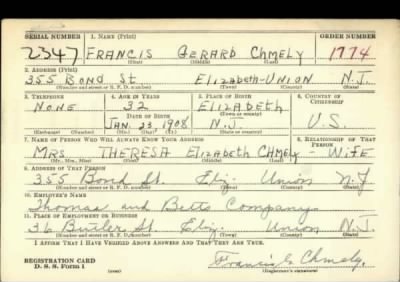 SERIAL NUMBER 1. NAME (Print) ORDER NUMBER
2347 FRANCIS GERARD CHMELY 1774
(First) (Middle) (Last)
2. ADDRESS (Print)
355 BOND St. ELIZABETH-UNION N.J.
(Number and street or R. F. D. number) (Town) (County) (State)
3. TELEPHONE 4. AGE IN YEARS 5. PLACE OF BIRTH 6. COUNTRY OF CITIZENSHIP
NONE 32 ELIZABETH
DATE OF BIRTH (Town or county)
JAN. 23 1908 N.J. U.S.
(Exchange) (Number) (Mo.) (Day) (Yr.) (State or country)
7. NAME OF PERSON WHO WILL ALWAYS KNOW YOUR ADDRESS 8. RELATIONSHIP OF THAT PERSON
MRS THERESA ELIZABETH CHMELY - WIFE
(Mr., Mrs., Miss) (First) (Middle) (Last)
9. ADDRESS OF THAT PERSON
355 Bond St. Eliz Union N.J.
(Number and street or R. F. D. number) (Town) (County) (State)
10. EMPLOYER'S NAME
Thomas and Betts Company
11. PLACE OF EMPLOYMENT OR BUSINESS
36 Butler St. Eliz. Union N.J.
(Number and street or R. F. D. number) (Town) (County) (State)
I AFFIRM THAT I HAVE VERIFIED ABOVE ANSWERS AND THAT THEY ARE TRUE.
REGISTRATION CARD
D. S. S. Form 1 (over) Francis G. Chmely.
(Registrant's signature)